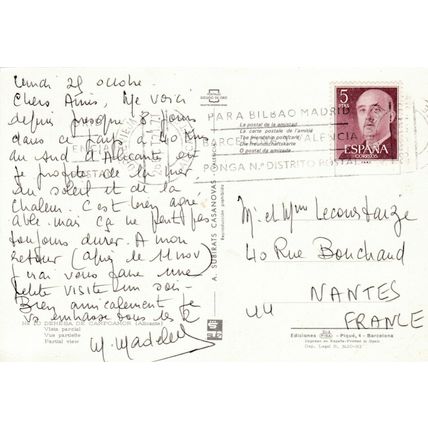 Lundi 29 octobre.
Chers Amis, Me voici
depuis presque 8 jours
dans ce pays à 40 Kms
au sud d'Alicante où
je profite de la mer
du soleil et de la
chaleur. C'est bien agré
able mais ça ne peut pas
toujours durer. A mon
retour (après le 11 nov)
j'irai vous faire une
petite visite un soir
Bien amicalement je
vs embrasse tous les 2
M. Madelei
DEHESA DE CAMPOAMOR (Alicante)
Vista parcial
Vue partielle
Partial view
A. SUBIRATS CASANOVAS
PARA BILBAO MADRID
BARCELONA VALENCIA
PONGA N.º DISTRITO POSTAL
La postal de la amistad
La carte postale de l'amitié
The friendship postcard
Die Freundschaftskarte
O postal da amizade
5
PTAS
ESPAÑA
CORREOS
M. et Mme Lecoustanze
40 Rue Bouchaud
44 NANTES
FRANCE
Ediciones Piqué, 4 - Barcelona